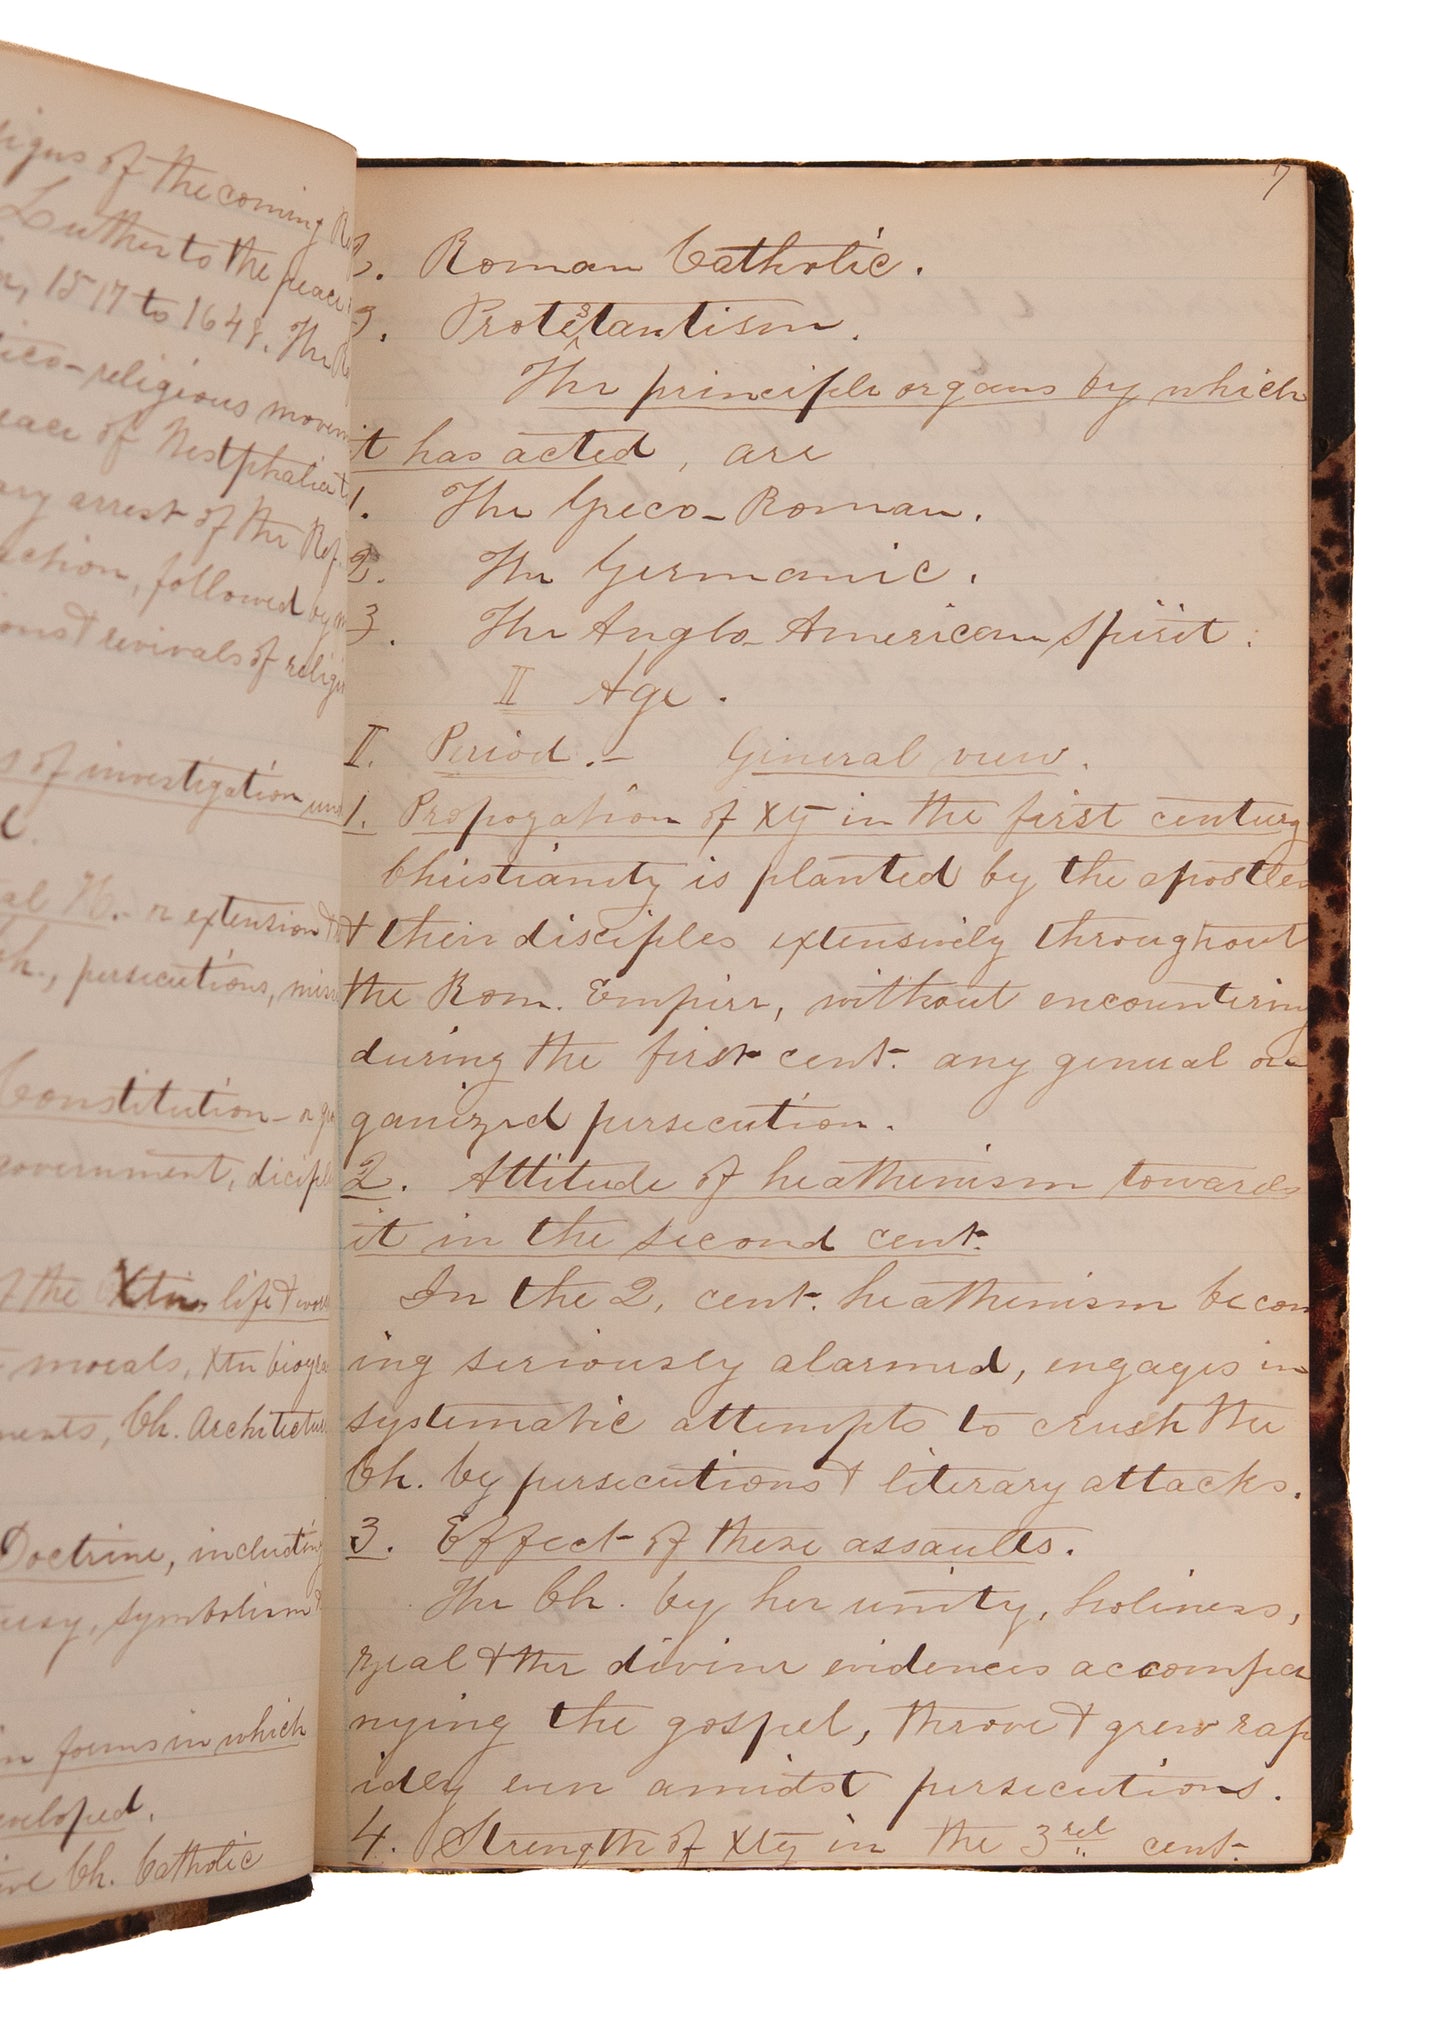 signs of the coming
Luther to the peace
1517 to 1648. The
tico-religious movem
eace of Westphalia t
ary arrest of the Ref.
action, followed by
ons & revivals of religi
s of investigation
al H. - or extension
ch., persecutions, miss
Constitution - or
government, dicipl
of the Xtn. life & wors
morals, Xtn biogra
ments, Ch. Architectur
Doctrine, including
symbolism
in forms in which
eveloped.
ive Ch. Catholic
7
2. Roman Catholic.
3. Protestantism.
The principle organs by which
it has acted, are
1. The Greco-Roman.
2. The Germanic.
3. The Anglo-American spirit.
II Age.
II. Period.- General view.
1. Propogation of Xty in the first century
Christianity is planted by the apostles
& their disciples extensively throughout
the Rom. Empire, without encountering
during the first cent. any genual or
ganized persecution.
2. Attitude of heathenism towards
it in the second cent.
In the 2. cent. heathenism becom
ing seriously alarmed, engages in
systematic attempts to crush the
Ch. by persecutions & literary attacks.
3. Effect of these assaults.
The Ch. by her unity, holiness,
zeal & the divine evidences accompa
nying the gospel, throve & grew rap
idly even amidst persecutions.
4. Strength of Xty in the 3rd cent.